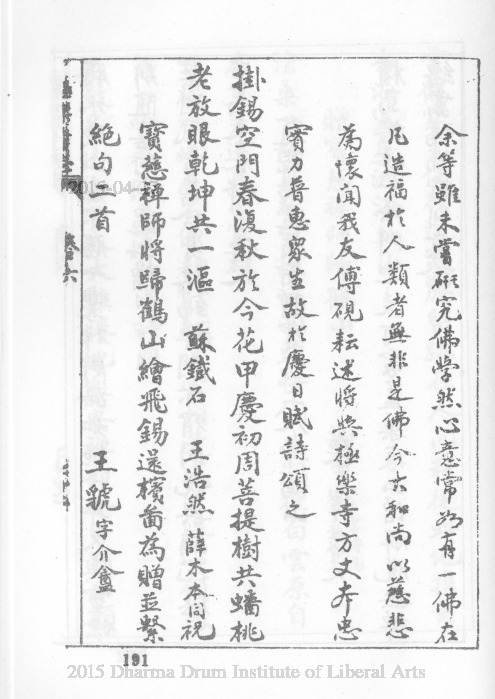 余等雖未嘗研究佛學然心意常如有一佛在
凡造福於人類者無非是佛今古和尚以慈悲
為懷聞我友傅硯耘述將與極樂寺方丈本忠
實力普惠眾生故於慶日賦詩頌之
掛錫空門春復秋於今花甲慶初周菩提樹共蟠桃
老放眼乾坤共一漚 蘇鐵石 王浩然 薛木本同祝
寶慈禪師將歸鶴山繪飛錫還檳圖為贈並繫
絕句二首 王虢字介盦
191
2015 Dharma Drum Institute of Liberal Arts